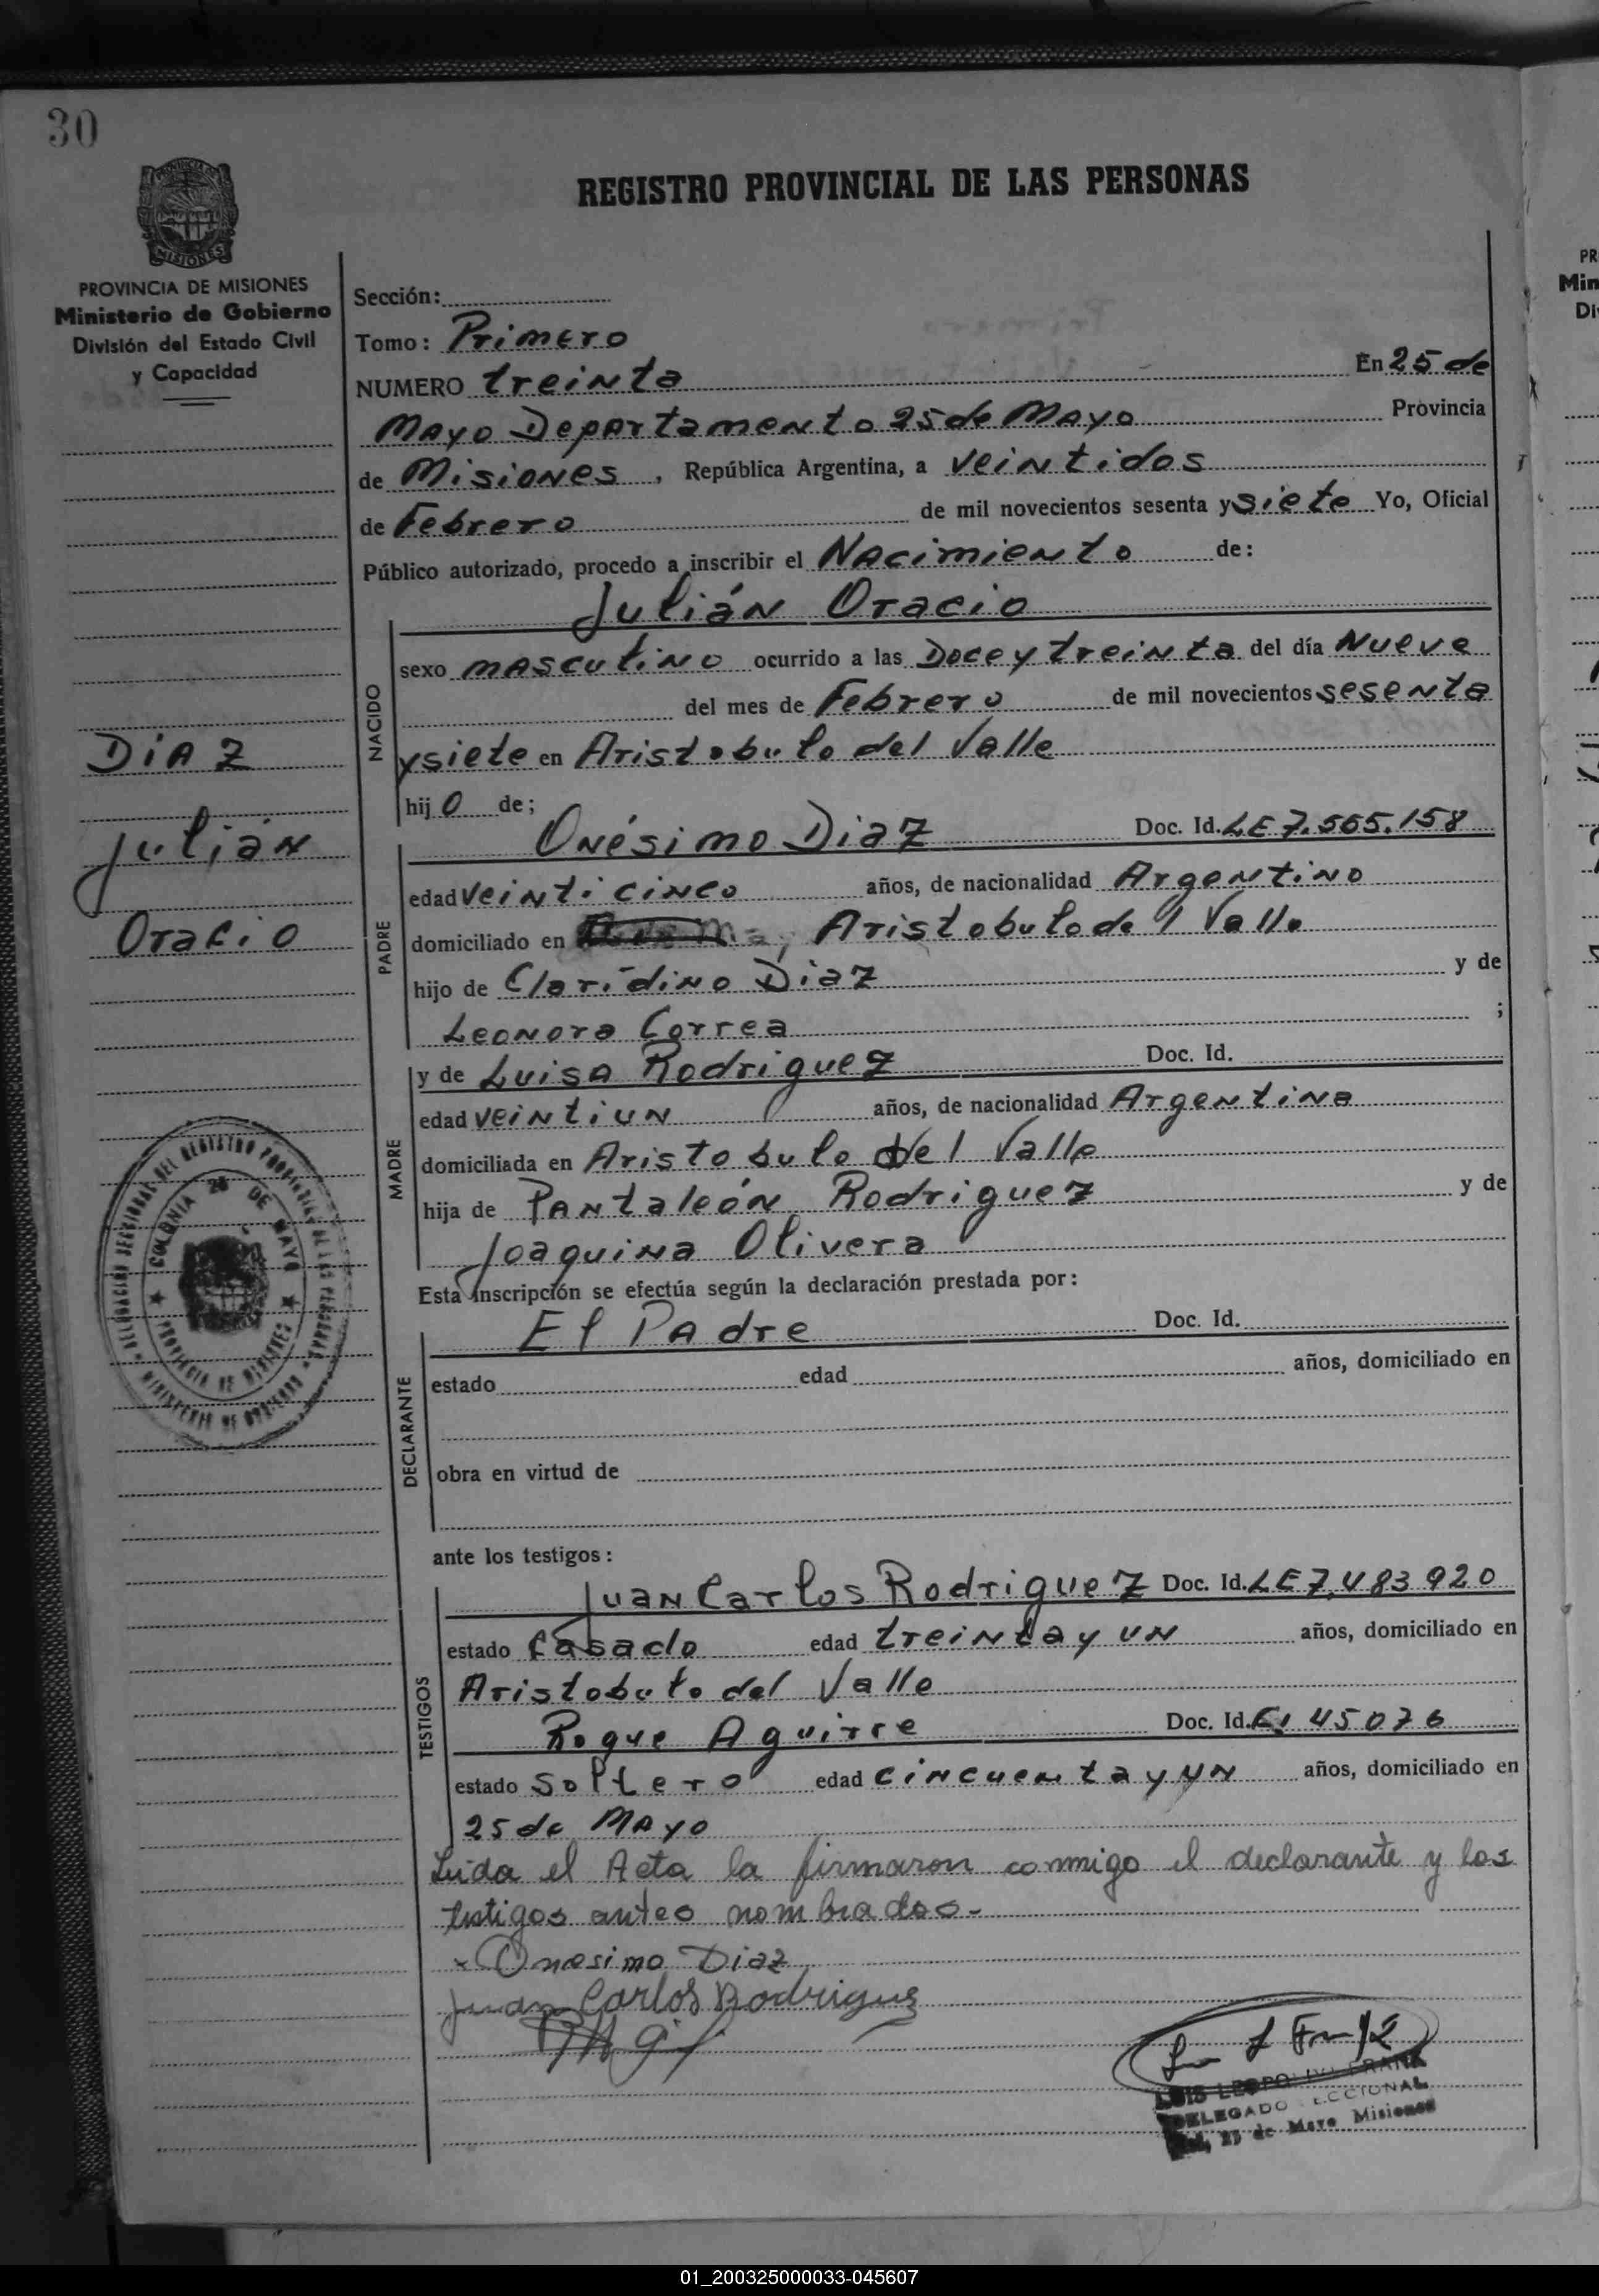 30
REGISTRO PROVINCIAL DE LAS PERSONAS
MISIONES
PROVINCIA DE MISIONES
Ministerio de Gobierno
División del Estado Civil
y Capacidad
DIAZ
Julián
Oracio
COLONIA 25 DE MAYO
PROVINCIA DE MISIONES
DELEGACION SECCIONAL DEL REGISTRO PROVINCIAL DE LAS PERSONAS
MINISTERIO DE GOBIERNO
Sección:
Tomo: Primero
NUMERO treinta En 25 de
Mayo Departamento 25 de Mayo Provincia
de Misiones, República Argentina, a veintidos
de Febrero de mil novecientos sesenta y siete Yo, Oficial
Público autorizado, procedo a inscribir el Nacimiento de:
Julián Oracio
NACIDO
sexo masculino ocurrido a las Doce y treinta del día Nueve
del mes de Febrero de mil novecientos sesenta
y siete en Aristobulo del Valle
hijo de;
PADRE
Onésimo Diaz Doc. Id. LE 7.565.158
edad veinti cinco años, de nacionalidad Argentino
domiciliado en Aristobulo del Valle
hijo de Claridino Diaz y de
Leonora Correa ;
MADRE
y de Luisa Rodriguez Doc. Id.
edad veintiun años, de nacionalidad Argentina
domiciliada en Aristobulo del Valle
hija de Pantaleón Rodriguez y de
Joaquina Olivera
Esta inscripción se efectúa según la declaración prestada por:
DECLARANTE
El Padre Doc. Id.
estado edad años, domiciliado en
obra en virtud de
ante los testigos:
TESTIGOS
Juan Carlos Rodriguez Doc. Id. LE 7.483 920
estado Casado edad treinta y un años, domiciliado en
Aristobulo del Valle
Roque Aguirre Doc. Id. 45076
estado Soltero edad cincuenta y un años, domiciliado en
25 de Mayo
Leida el Acta la firmaron conmigo el declarante y los
testigos antes nombrados.-
Onesimo Diaz
Juan Carlos Rodriguez
DELEGADO SECCIONAL
25 de Mayo Misiones
PR
Min
Di
01_200325000033-045607